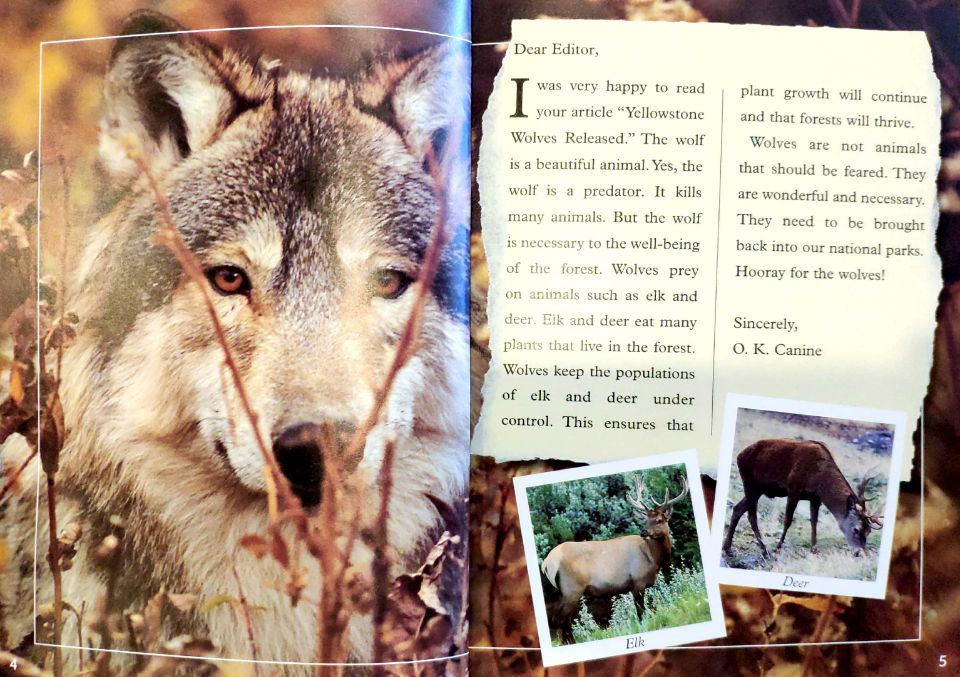 Dear Editor,
I was very happy to read
your article “Yellowstone
Wolves Released.” The wolf
is a beautiful animal. Yes, the
wolf is a predator. It kills
many animals. But the wolf
is necessary to the well-being
of the forest. Wolves prey
on animals such as elk and
deer. Elk and deer eat many
plants that live in the forest.
Wolves keep the populations
of elk and deer under
control. This ensures that
plant growth will continue
and that forests will thrive.
Wolves are not animals
that should be feared. They
are wonderful and necessary.
They need to be brought
back into our national parks.
Hooray for the wolves!
Sincerely,
O. K. Canine
Elk
Deer
4
5